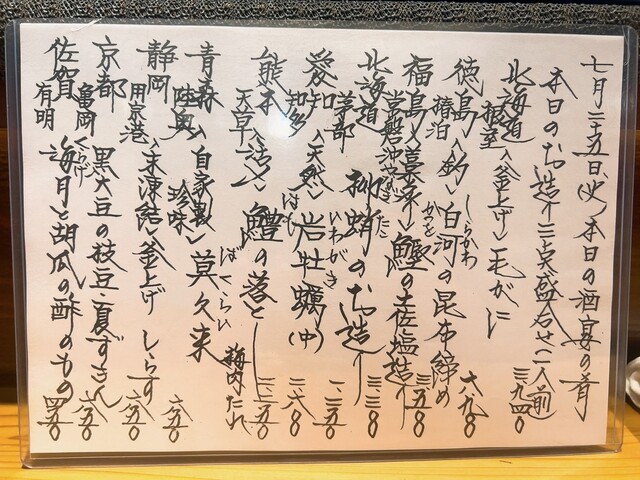 七月二十五日(火)本日の酒宴の肴
本日のお造り三点盛合せ(二人前)三九四〇
北海道 根室 〈釜上げ〉毛がに 六八九八
徳島 椿泊 〈釣〉白河の昆布締め しらかわ
福島 常磐沖 〈藁条〉鰹の土佐塩造り かつを 三五〇
北海道 苫部 柳蛸のお造り やなぎだこ 三三〇
愛知 知多 〈天然〉岩牡蠣(中) いわがき 一三五〇
熊本 天草 〈活〆〉鱧の落とし はも 梅肉だれ 三五〇
青森 陸奥 〈自家製〉珍味 莫久来 ばくらい
静岡 用宗港 〈未凍結〉〈釜上げ〉しらす 六五〇
京都 亀岡 黒大豆の枝豆・夏ずきん 六五〇
佐賀 有明 海月と胡瓜の酢のもの くらげ 四五〇